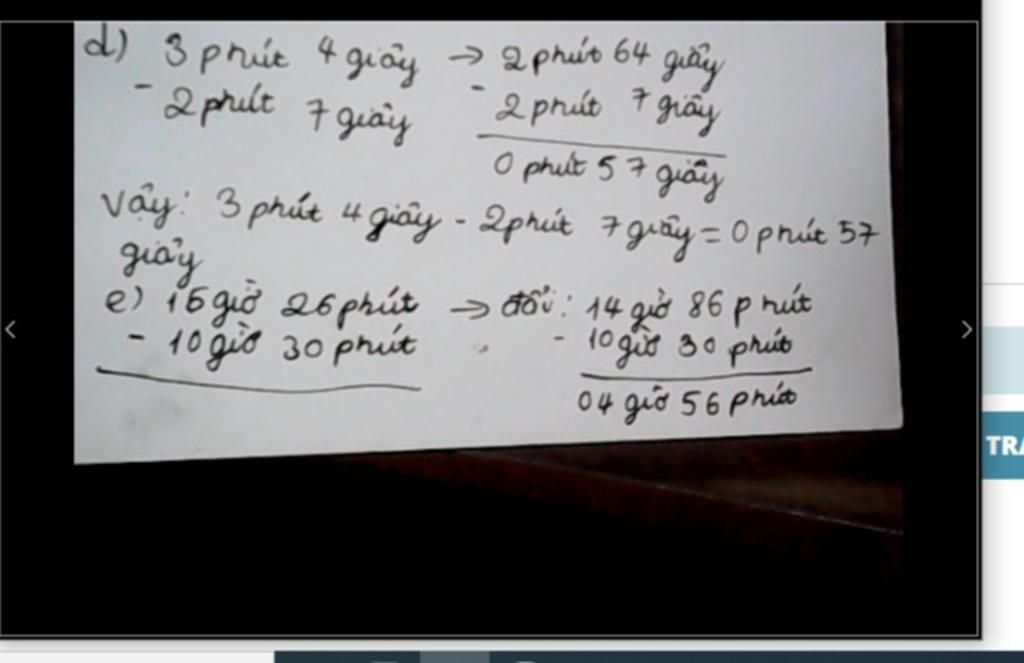 d) 3 phút 4 giây → 2 phút 64 giây
- 2 phút 7 giây - 2 phút 7 giây
0 phút 57 giây
Vậy: 3 phút 4 giây - 2 phút 7 giây = 0 phút 57
giây
e) 15 giờ 26 phút → đổi: 14 giờ 86 phút
- 10 giờ 30 phút - 10 giờ 30 phút
04 giờ 56 phút
TRA